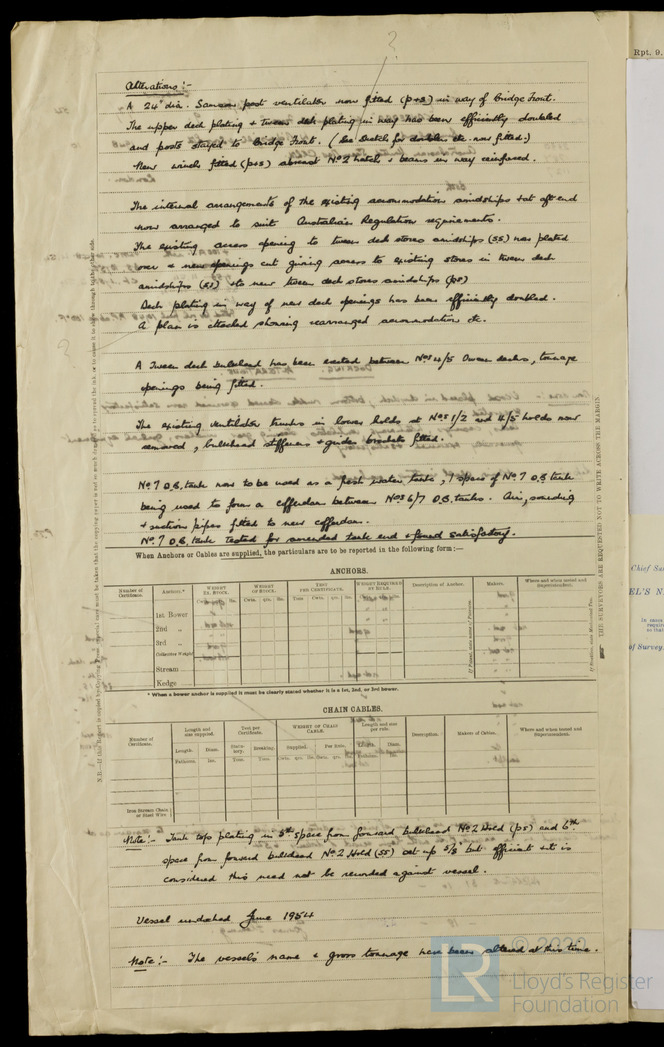 Rpt. 9.
Alterations:-
A 24" dia. Samson post ventilator now fitted (p+s) in way of Bridge Front.
The upper deck plating + tween deck plating in way has been efficiently doubled
and posts stayed to Bridge Front. (See sketch for doublers etc. now fitted.)
New winch fitted (p+s) abreast No 2 hatch + beams in way reinforced.
The internal arrangements of the existing accommodation amidships + at aft end
now arranged to suit Australian Regulation requirements.
The existing access opening to tween deck stores amidships (SS) was plated
over + new openings cut giving access to existing stores in tween deck
amidships (SS) + to new tween deck stores amidships (PS)
Deck plating in way of new deck openings has been efficiently doubled.
A plan is attached showing rearranged accommodation etc.
A Tween deck bulkhead has been erected between Nos 4/5 tween decks, tonnage
openings being fitted.
The existing ventilator trunks in lower holds at Nos 1/2 and 4/5 holds now
removed, bulkhead stiffeners + girder brackets fitted.
No. 7 D.B. tank now to be used as a fresh water tank, 1 space of No. 7 D.B tank
being used to form a cofferdam between Nos 6/7 D.B. tanks. Air, sounding
+ suction pipes fitted to new cofferdam.
No. 7 D.B. tank tested for amended tank end + found satisfactory.
When Anchors or Cables are supplied, the particulars are to be reported in the following form:—
ANCHORS.
Number of Certificate.
Anchors.*
WEIGHT EX. STOCK.
WEIGHT OF STOCK.
TEST PER CERTIFICATE.
WEIGHT REQUIRED BY RULE.
Description of Anchor.
Makers.
Where and when tested and Superintendent.
1st Bower
2nd "
3rd "
Collective Weight
Stream
Kedge
* When a bower anchor is supplied it must be clearly stated whether it is a 1st, 2nd, or 3rd bower.
CHAIN CABLES.
Number of Certificate.
Length and size supplied.
Test per Certificate.
WEIGHT OF CHAIN CABLE.
Length and size per rule.
Description.
Makers of Cables.
Where and when tested and Superintendent.
Length. Diam. Statutory. Breaking. Supplied. Per Rule. Diam.
Fathoms. Ins. Tons. Tons. Cwts. qrs. lbs. Cwts. qrs. lbs. Fathoms.
Iron Stream Chain or Steel Wire
Note:- Tank top plating in 5th space from forward bulkhead No 2 Hold (PS) and 6th
space from forward bulkhead No 2 Hold (SS) set up 5/8" but efficient + it is
considered this need not be recorded against vessel.
Vessel undocked June 1954
Note:- The vessels name + gross tonnage have been altered at this time.
THE SURVEYORS ARE REQUESTED NOT TO WRITE ACROSS THE MARGIN.
of Survey
LR
© 2020
Lloyd's Register
Foundation